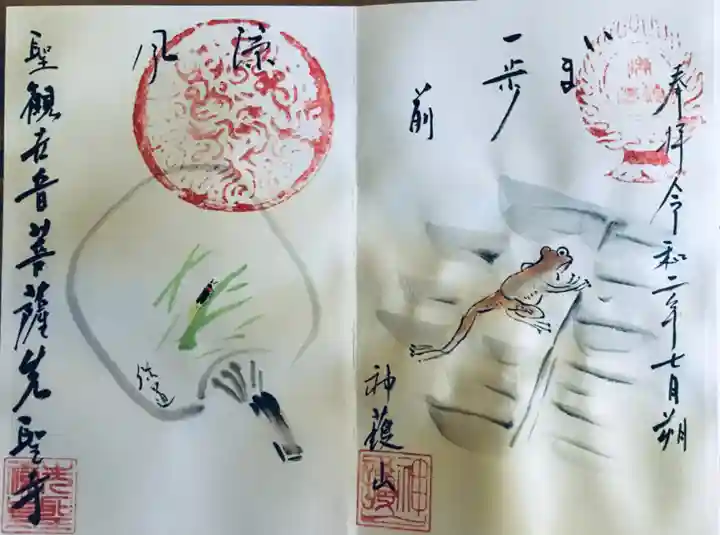 奉拝令和二年七月朔
いま
一歩
前
神護山
涼風
聖観世音菩薩先聖寺